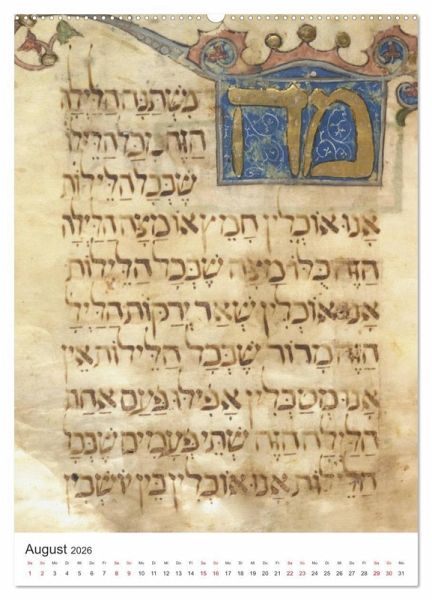 מה
נשתנה הלילה
הזה מכל הלילו
שבכל הלילות
אנו אוכלין חמץ או מצה הלילה
הזה כלו מצה שבכל הלילות
אנו אוכלין שאר ירקות הלילה
הזה מרור שבכל הלילות אין
אנו מטבלין אפילו פעם אחת
הלילה הזה שתי פעמים שבכל
הלילות אנו אוכלין בין יושבין
August 2026
Sa So Mo Di Mi Do Fr Sa So Mo Di Mi Do Fr Sa So Mo Di Mi Do Fr Sa So Mo Di Mi Do Fr Sa So Mo
1 2 3 4 5 6 7 8 9 10 11 12 13 14 15 16 17 18 19 20 21 22 23 24 25 26 27 28 29 30 31